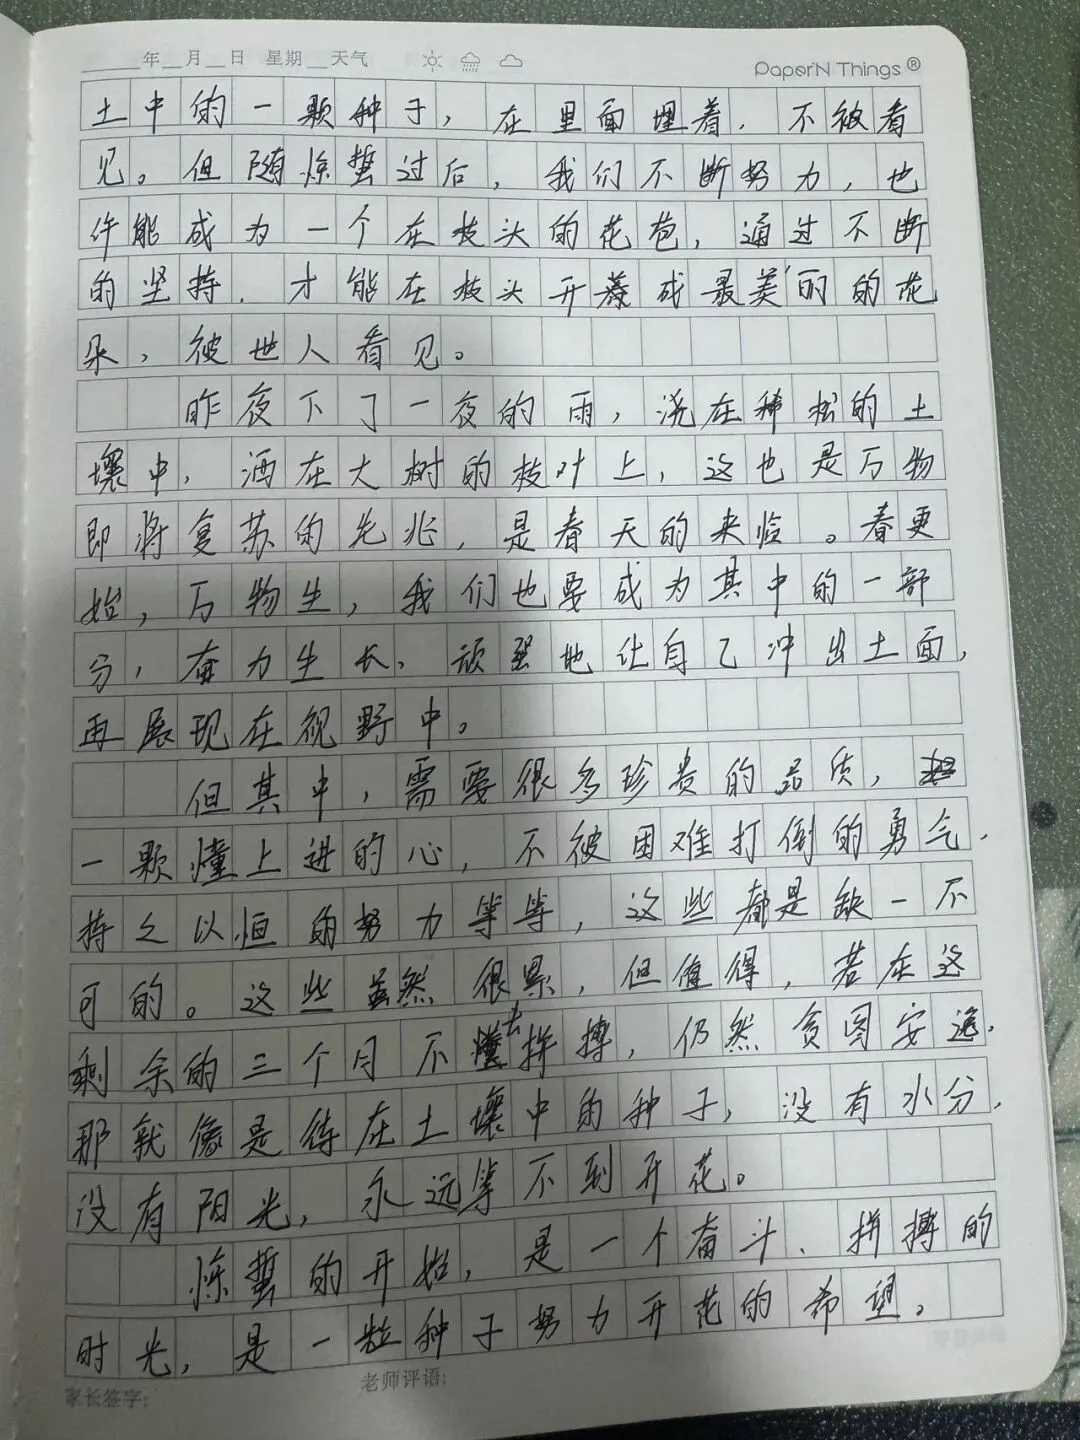 年 月 日 星期 天气
PaperN Things ®
土中的一颗种子，在里面埋着，不被看
见。但随惊蛰过后，我们不断努力，也
许能成为一个在枝头的花苞，通过不断
的坚持，才能在枝头开落成最美丽的花
朵，被世人看见。
昨夜下了一夜的雨，浇在稀松的土
壤中，洒在大树的枝叶上，这也是万物
即将复苏的先兆，是春天的来临。春更
始，万物生，我们也要成为其中的一部
分，奋力生长，顽强地让自己冲出土面，
再展现在视野中。
但其中，需要很多珍贵的品质，
一颗懂上进的心，不被困难打倒的勇气，
持之以恒的努力等等，这些都是缺一不
可的。这些虽然很累，但值得，若在这
剩余的三个月不去拼搏，仍然贪图安逸，
那就像是待在土壤中的种子，没有水分，
没有阳光，永远等不到开花。
惊蛰的开始，是一个奋斗、拼搏的
时光，是一粒种子努力开花的希望。
家长签字:
老师评语: